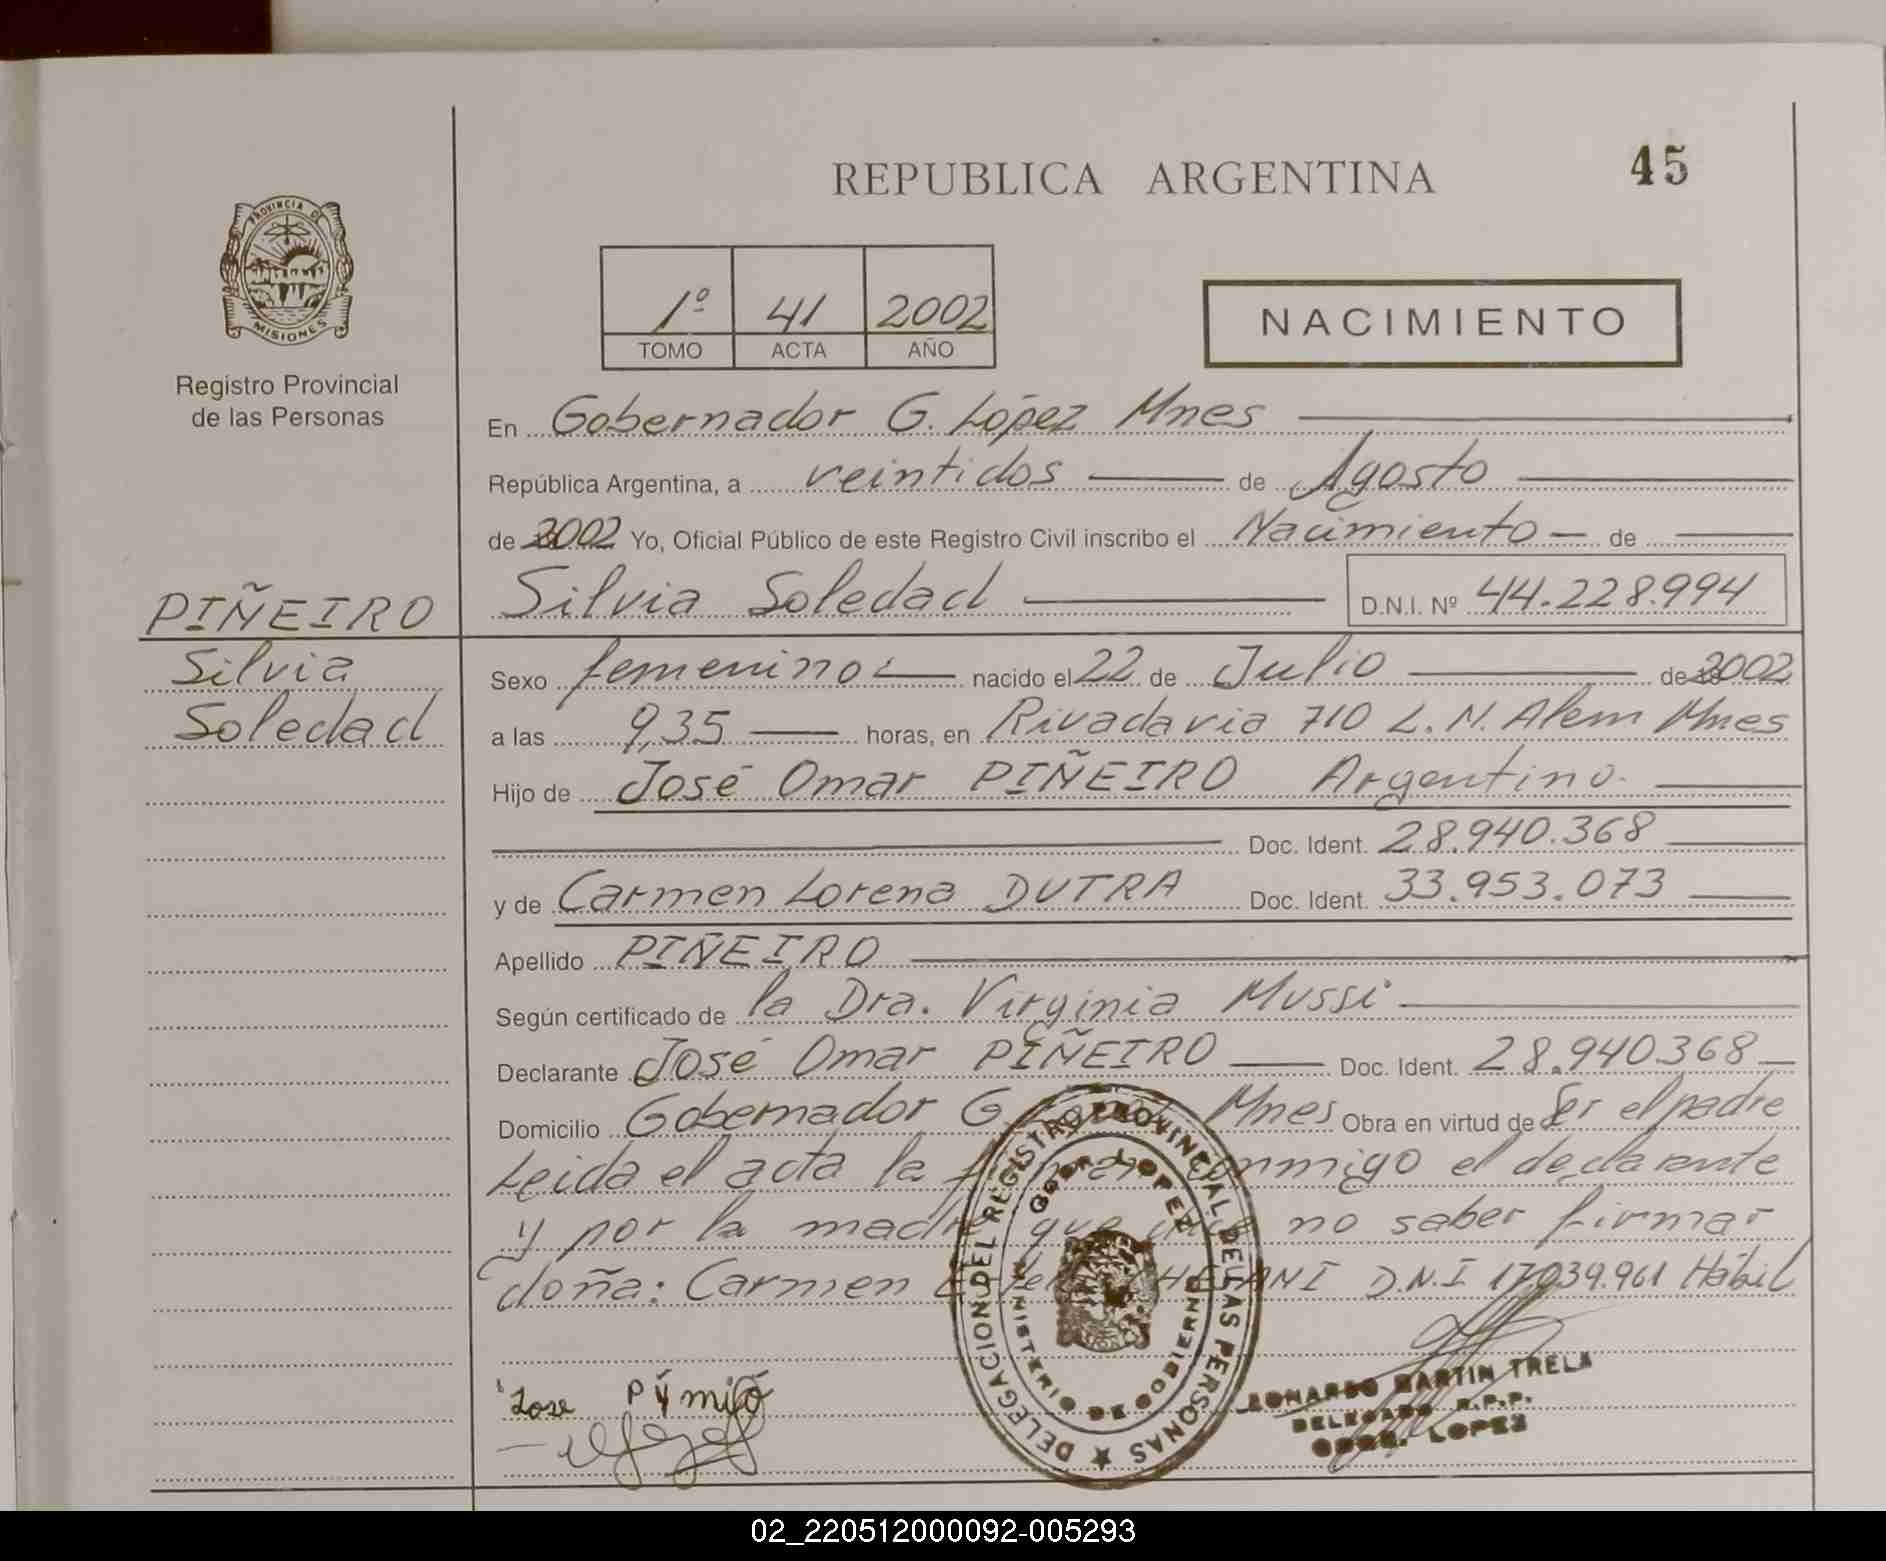 45
REPUBLICA ARGENTINA
PROVINCIA DE
MISIONES
Registro Provincial
de las Personas
1º 41 2002
TOMO ACTA AÑO
NACIMIENTO
En Gobernador G. López Mnes
República Argentina, a veintidos de Agosto
de 2002 Yo, Oficial Público de este Registro Civil inscribo el Nacimiento de
PIÑEIRO
Silvia
Soledad
Silvia Soledad D.N.I. Nº 44.228.994
Sexo femenino nacido el 22 de Julio de 2002
a las 9,35 horas, en Rivadavia 710 L. N. Alem Mnes
Hijo de José Omar PIÑEIRO Argentino.
Doc. Ident. 28.940.368
y de Carmen Lorena DUTRA Doc. Ident. 33.953.073
Apellido PIÑEIRO
Según certificado de la Dra. Virginia Mussi
Declarante José Omar PIÑEIRO Doc. Ident. 28.940.368
Domicilio Gobernador G. Mnes Obra en virtud de Ser el padre
Leida el acta la conmigo el declarante
y por la madre que no saber firmar
doña: Carmen D.N.I 17.039.961 Hábil
Jose
DELEGACION DEL REGISTRO PROVINCIAL DE LAS PERSONAS
GOBR. LOPEZ
MINISTERIO DE GOBIERNO
MARTIN TRELA
DELEGADO R.P.P.
LOPEZ
02_220512000092-005293